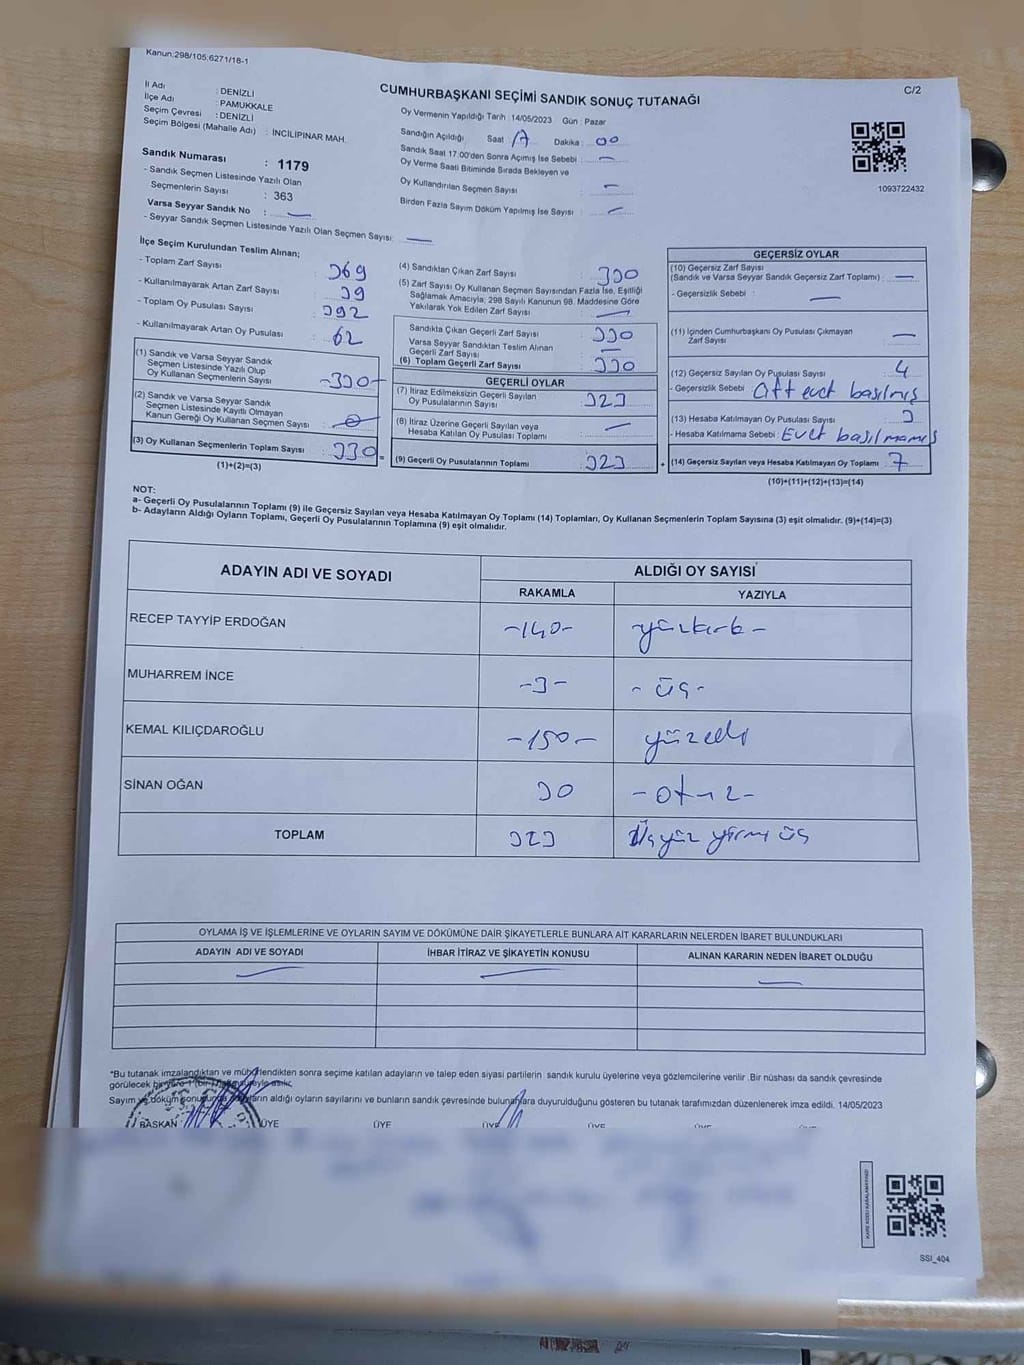 Kanun:298/105;6271/18-1
C/2
İl Adı : DENİZLİ
İlçe Adı : PAMUKKALE
Seçim Çevresi : DENİZLİ
Seçim Bölgesi (Mahalle Adı) : İNCİLİPINAR MAH.
Sandık Numarası : 1179
- Sandık Seçmen Listesinde Yazılı Olan
Seçmenlerin Sayısı : 363
Varsa Seyyar Sandık No : —
- Seyyar Sandık Seçmen Listesinde Yazılı Olan Seçmen Sayısı: —
CUMHURBAŞKANI SEÇİMİ SANDIK SONUÇ TUTANAĞI
Oy Vermenin Yapıldığı Tarih :14/05/2023 Gün : Pazar
Sandığın Açıldığı Saat Dakika : 00
Sandık Saat 17:00'den Sonra Açılmış İse Sebebi : —
Oy Verme Saati Bitiminde Sırada Bekleyen ve
Oy Kullandırılan Seçmen Sayısı : —
Birden Fazla Sayım Döküm Yapılmış İse Sayısı : —
1093722432
İlçe Seçim Kurulundan Teslim Alınan;
- Toplam Zarf Sayısı : 369
- Kullanılmayarak Artan Zarf Sayısı : 39
- Toplam Oy Pusulası Sayısı : 392
- Kullanılmayarak Artan Oy Pusulası : 62
(1) Sandık ve Varsa Seyyar Sandık
Seçmen Listesinde Yazılı Olup
Oy Kullanan Seçmenlerin Sayısı : -330-
(2) Sandık ve Varsa Seyyar Sandık
Seçmen Listesinde Kayıtlı Olmayan
Kanun Gereği Oy Kullanan Seçmen Sayısı : 0
(3) Oy Kullanan Seçmenlerin Toplam Sayısı : 330
(1)+(2)=(3)
(4) Sandıktan Çıkan Zarf Sayısı : 330
(5) Zarf Sayısı Oy Kullanan Seçmen Sayısından Fazla İse, Eşitliği
Sağlamak Amacıyla; 298 Sayılı Kanunun 98. Maddesine Göre
Yakılarak Yok Edilen Zarf Sayısı : —
Sandıkta Çıkan Geçerli Zarf Sayısı : 330
Varsa Seyyar Sandıktan Teslim Alınan
Geçerli Zarf Sayısı : —
(6) Toplam Geçerli Zarf Sayısı : 330
GEÇERLİ OYLAR
(7) İtiraz Edilmeksizin Geçerli Sayılan
Oy Pusulalarının Sayısı : 323
(8) İtiraz Üzerine Geçerli Sayılan veya
Hesaba Katılan Oy Pusulası Toplamı : —
(9) Geçerli Oy Pusulalarının Toplamı : 323
GEÇERSİZ OYLAR
(10) Geçersiz Zarf Sayısı
(Sandık ve Varsa Seyyar Sandık Geçersiz Zarf Toplamı) : —
- Geçersizlik Sebebi : —
(11) İçinden Cumhurbaşkanı Oy Pusulası Çıkmayan
Zarf Sayısı : —
(12) Geçersiz Sayılan Oy Pusulası Sayısı : 4
- Geçersizlik Sebebi : evet basılmış
(13) Hesaba Katılmayan Oy Pusulası Sayısı : 3
- Hesaba Katılmama Sebebi : Evet basılmamış
(14) Geçersiz Sayılan veya Hesaba Katılmayan Oy Toplamı : 7
(10)+(11)+(12)+(13)=(14)
NOT:
a- Geçerli Oy Pusulalarının Toplamı (9) ile Geçersiz Sayılan veya Hesaba Katılmayan Oy Toplamı (14) Toplamları, Oy Kullanan Seçmenlerin Toplam Sayısına (3) eşit olmalıdır. (9)+(14)=(3)
b- Adayların Aldığı Oyların Toplamı, Geçerli Oy Pusulalarının Toplamına (9) eşit olmalıdır.
ADAYIN ADI VE SOYADI ALDIĞI OY SAYISI
RAKAMLA YAZIYLA
RECEP TAYYİP ERDOĞAN -140- -yüzkırk-
MUHARREM İNCE -3- -üç-
KEMAL KILIÇDAROĞLU -150- yüzelli
SİNAN OĞAN 30 -otuz-
TOPLAM 323 Üçyüz yirmi üç
OYLAMA İŞ VE İŞLEMLERİNE VE OYLARIN SAYIM VE DÖKÜMÜNE DAİR ŞİKAYETLERLE BUNLARA AİT KARARLARIN NELERDEN İBARET BULUNDUKLARI
ADAYIN ADI VE SOYADI İHBAR İTİRAZ VE ŞİKAYETİN KONUSU ALINAN KARARIN NEDEN İBARET OLDUĞU
— — —
*Bu tutanak imzalandıktan ve mühürlendikten sonra seçime katılan adayların ve talep eden siyasi partilerin sandık kurulu üyelerine veya gözlemcilerine verilir .Bir nüshası da sandık çevresinde
görülecek bir yere 1 (bir) hafta süreyle asılır.
Sayım ve döküm sonucunda adayların aldığı oyların sayılarını ve bunların sandık çevresinde bulunanlara duyurulduğunu gösteren bu tutanak tarafımızdan düzenlenerek imza edildi. 14/05/2023
BAŞKAN ÜYE ÜYE ÜYE ÜYE
SSI_404